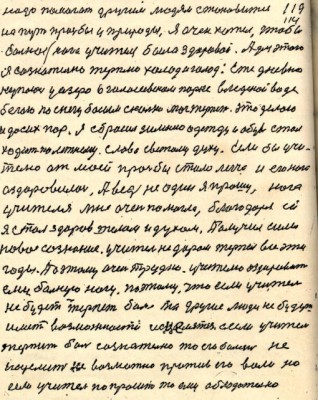 надо помогат другим людям становится 119
на пут прозбы и природы, я очен хотел, чтобы 114
болная нога учителя была здоровой. Для этого
я сознателно терплю холод и голод: Еже дневно
купаюс у озеро в голосеевском парке в ледяной воде
бегаю по снегу босым сколко мог терпет. Это делаю
и до сих пор. Я сбросил зимнию одежду и обув стал
ходит по летному. Слава святому духу. Если бы учи-
телю от моей прозбы стало легче и она его
оздоровилас, А вед не один я прошу, нога
учителя мне очен помогла, благодоря ей
я стал здоров телом и духом, Получил силы
новое сознание. учител не даром терпел все эти
годы. Поэтому очен трудно. учителю оздороват
ему болную ногу. потому, что если учител
не будет терпет бол На другие люди не будут
имет возможности исцелятся если учител
терпит бол сознателно то его болезн не
исцелит не возможно против его воли но
если учител попросит то ему обходателно